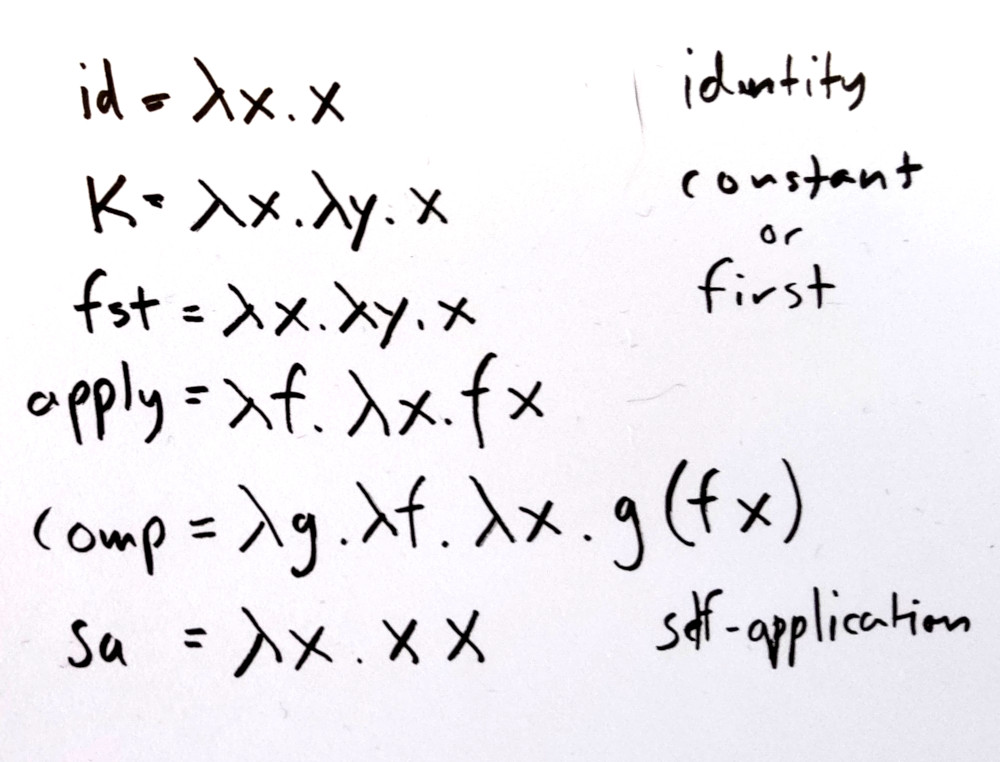 id = λx. x identity
K = λx. λy. x constant
or
fst = λx. λy. x first
apply = λf. λx. f x
comp = λg. λf. λx. g (f x)
sa = λx. x x self-application